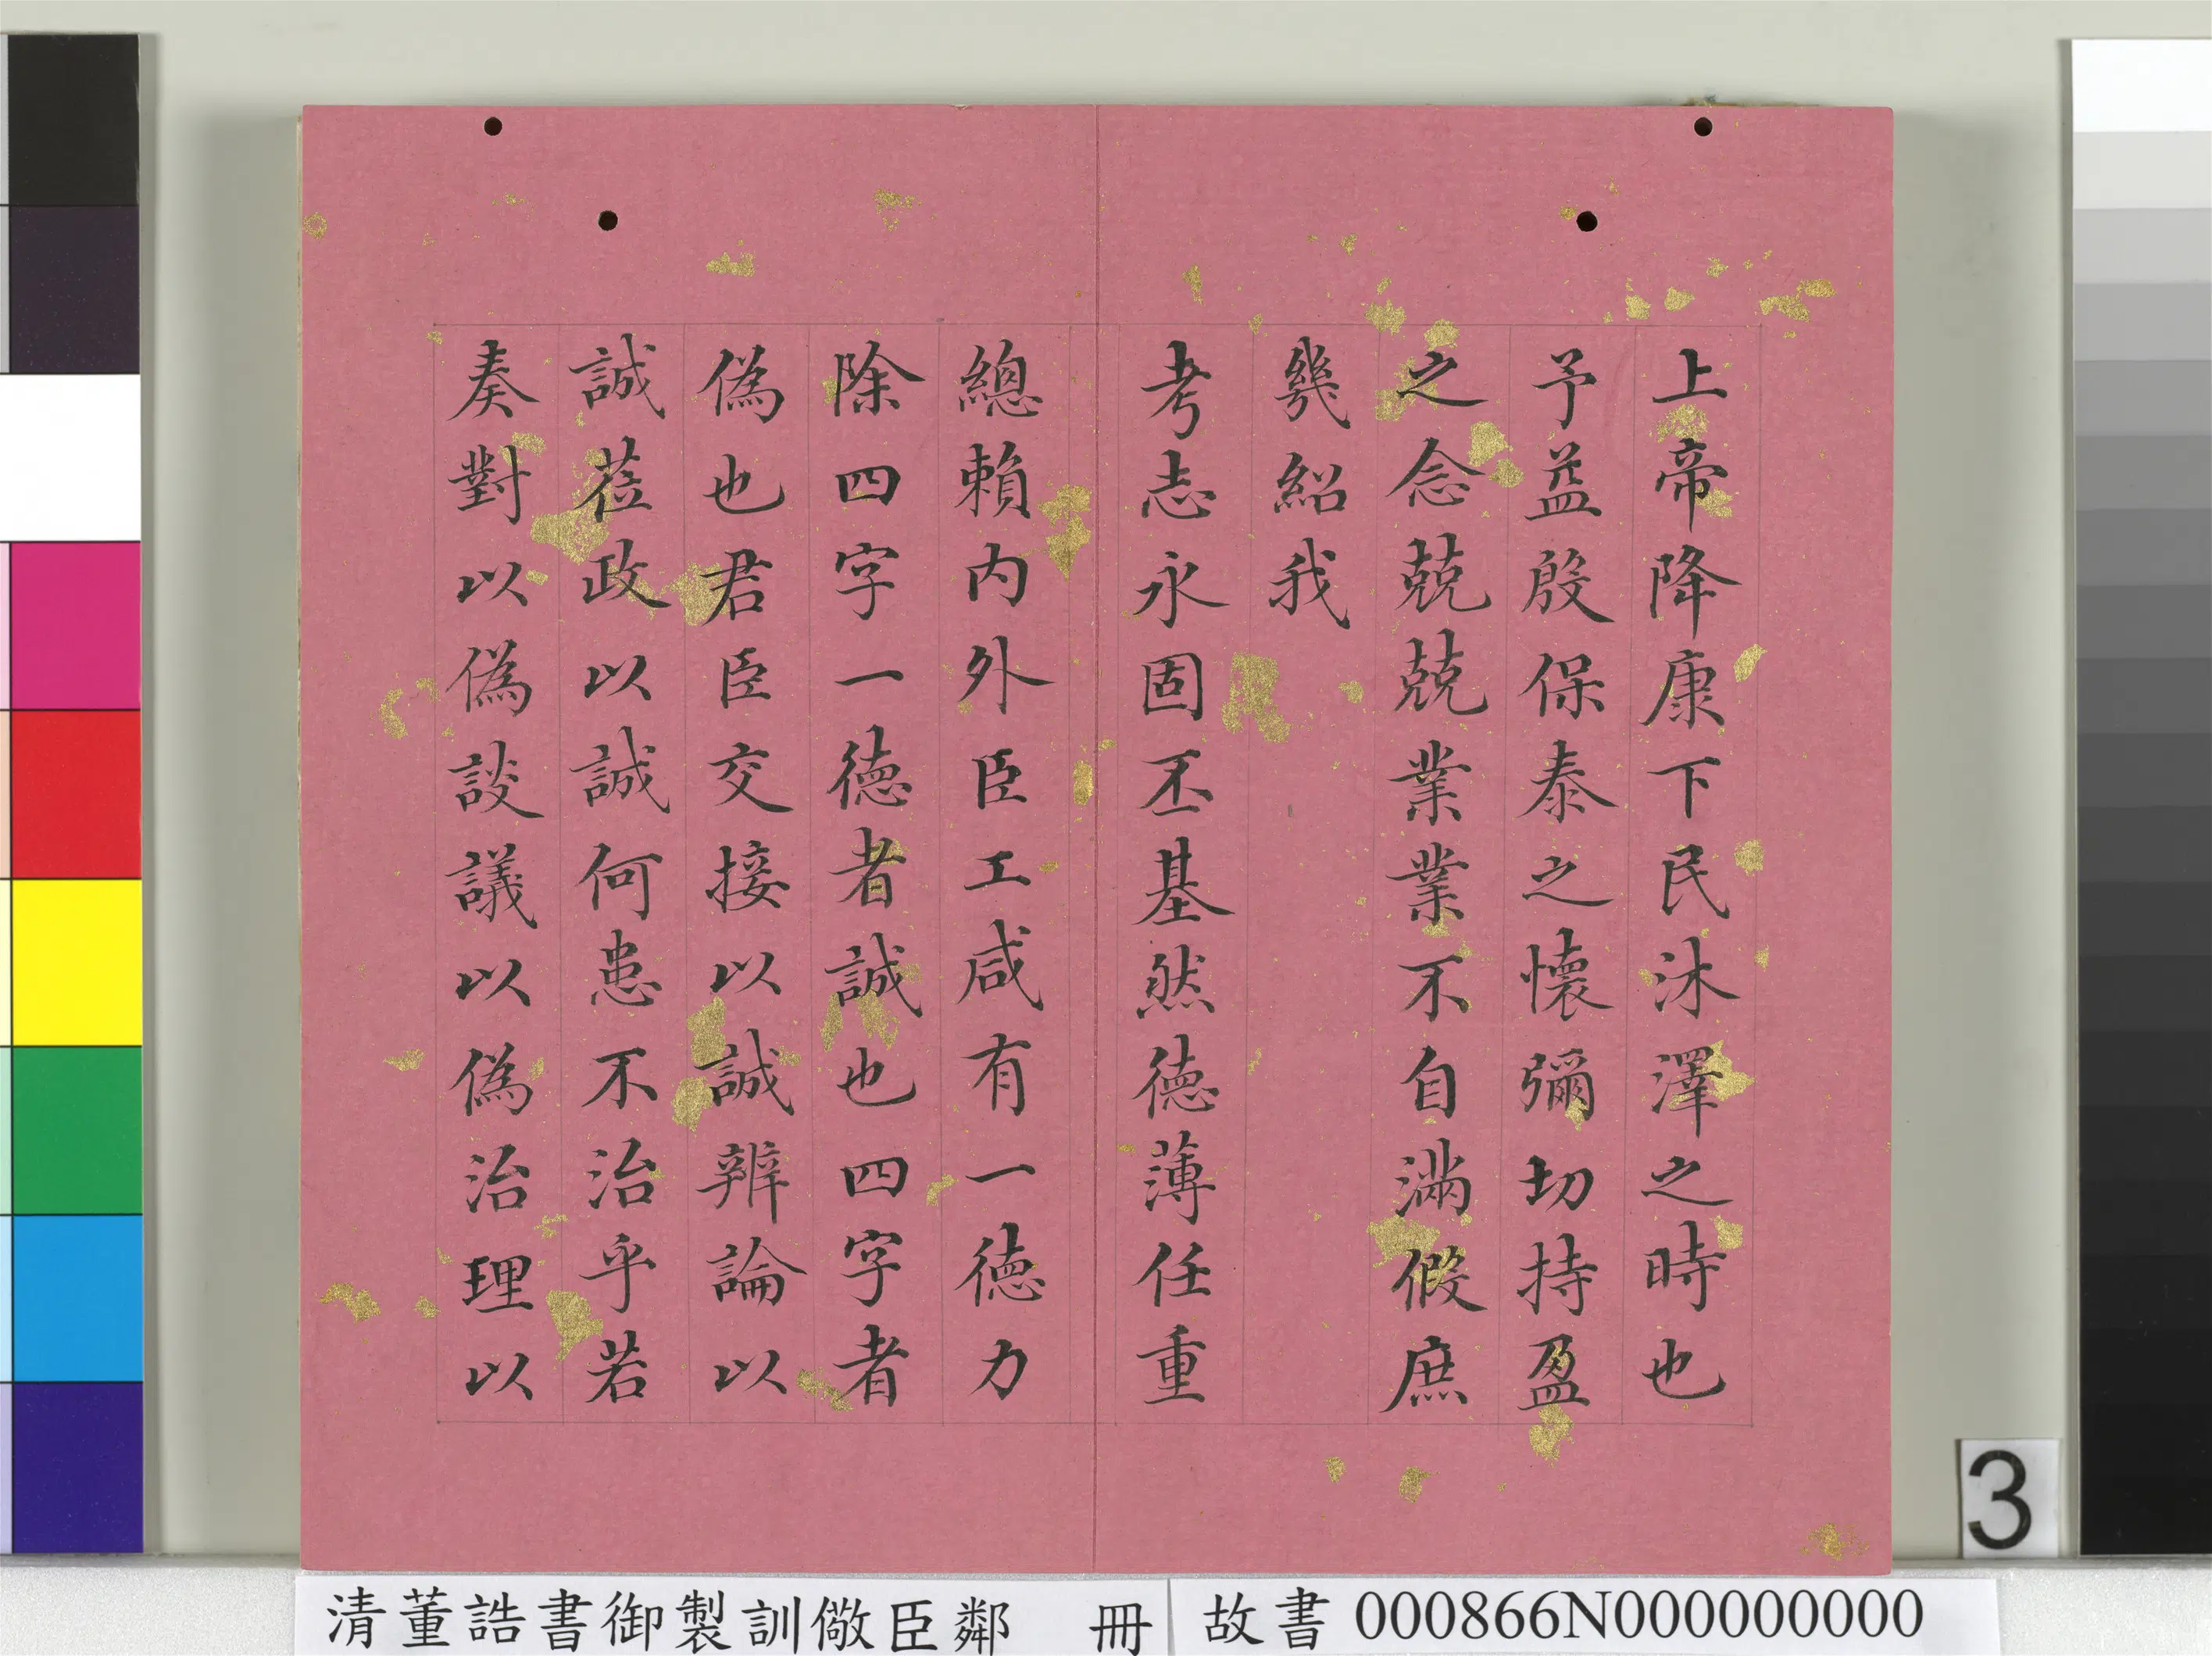 上帝降康下民沐澤之時也
予益殷保泰之懷彌切持盈
之念兢兢業業不自滿假庶
幾紹我
考志永固丕基然德薄任重
總賴内外臣工咸有一德力
除四字一德者誠也四字者
偽也君臣交接以誠辨論以
誠莅政以誠何患不治乎若
奏對以偽談議以偽治理以
3
清董誥書御製訓儆臣鄰 冊
故書 000866N000000000